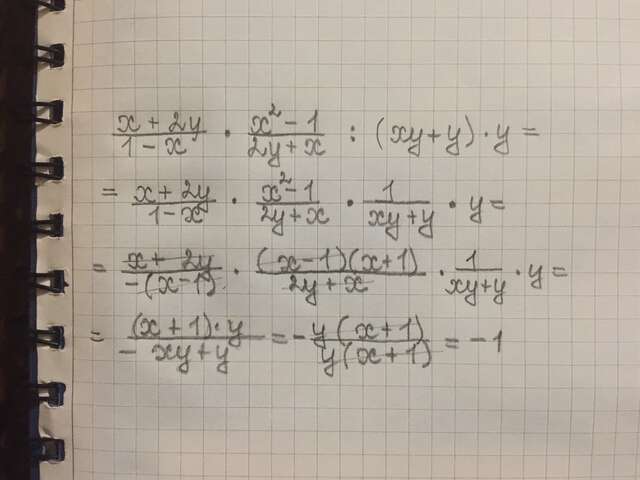 \frac{x+2y}{1-x} \cdot \frac{x^2-1}{2y+x} : (xy+y) \cdot y =
= \frac{x+2y}{1-x} \cdot \frac{x^2-1}{2y+x} \cdot \frac{1}{xy+y} \cdot y =
= \frac{x+2y}{-(x-1)} \cdot \frac{(x-1)(x+1)}{2y+x} \cdot \frac{1}{xy+y} \cdot y =
= \frac{(x+1) \cdot y}{-xy+y} = -\frac{y(x+1)}{y(x+1)} = -1